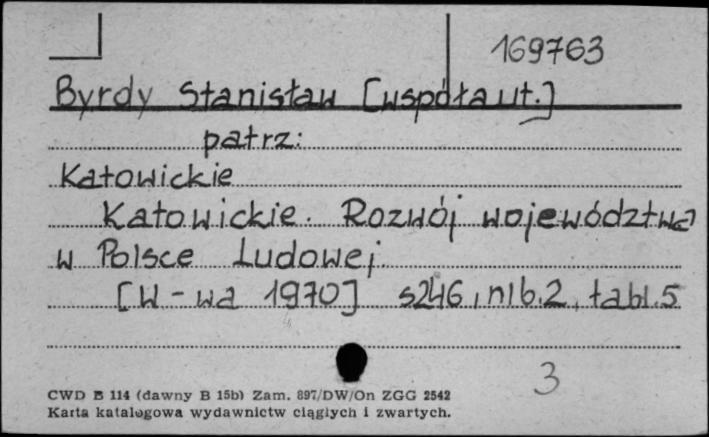 169763
Byrdy Stanisław [współaut.]
patrz:
Katowickie
Katowickie. Rozwój województwa
w Polsce Ludowej.
[W-wa 1970] s246, nlb.2, tabl.5
3
CWD B 114 (dawny B 15b) Zam. 897/DW/On ZGG 2542
Karta katalogowa wydawnictw ciągłych i zwartych.